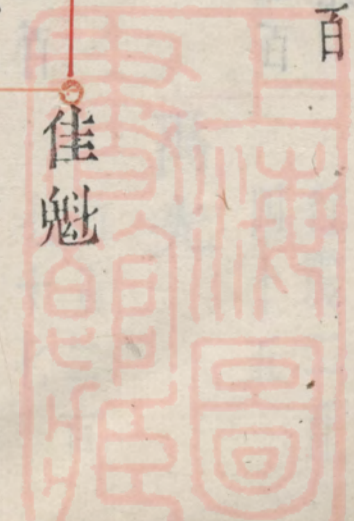 百
佳魁
上海圖
書館藏